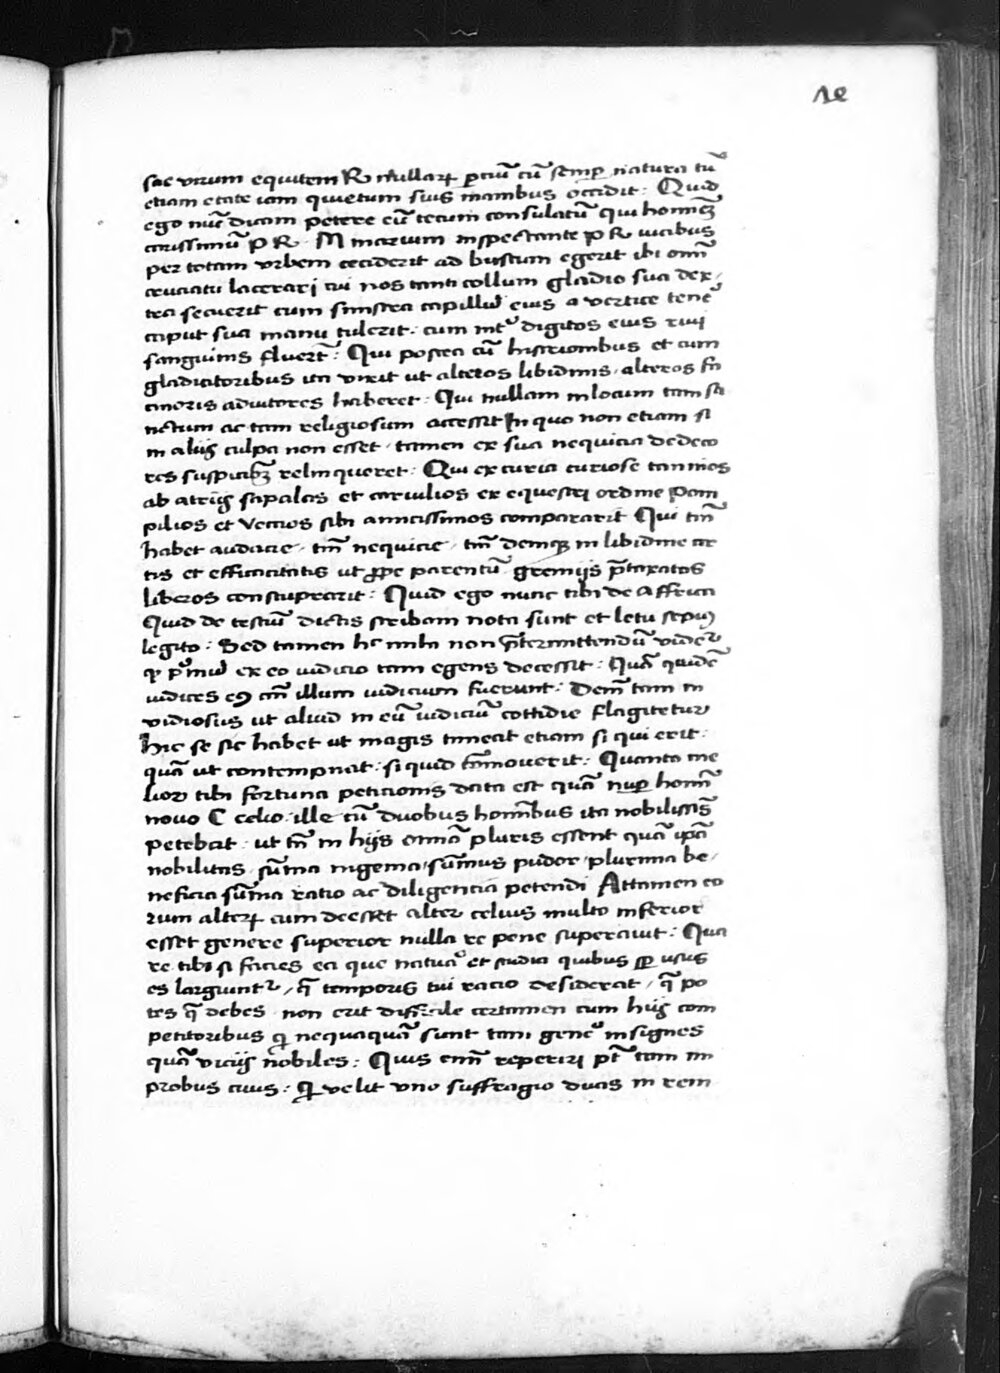 10
sac virum equitem R nullarꝝ ꝑciū cū semꝑ natura tū
etiam etate iam quietum suis manibus occidit: Quid
ego nūc dicam petere eū tecum consulatū qui homīeꝫ
carissimū P R M marium inspectante P R vicibus
per totam urbem ceciderit ad bustum egerit ibi omī
cruciatu lacerari cui nos tanti collum gladio sua dex
tra secuerit cum sinistra capillū eius a vertice tenēt
caput sua manu tulerit. cum int᷑ digitos eius rivi
sanguinis fluerēt: Qui postea cū histrionibus et cum
gladiatoribus ita vixit ut alteros libidinis, alteros fa
cinoris adiutores haberet: Qui nullam in locum tam sā
nctum ac tam religiosum accessit In quo non etiam si
in aliis culpa non esset, tamen ex sua nequicia dedeco
res suspicioꝫ relinqueret: Qui ex curia curiose tannios
ab atriis sapalas et carvilios ex equestri ordine Pom
pilios et Veccios sibi amicissimos compararit Qui tm̄
habet audacie, tm̄ nequicie, tm̄ deniqꝫ in libidine ar
tis et efficacitatis ut ꝓpe parentū gremiis p̄taxatos
liberos constuprarit: Quid ego nunc tibi de Affrica
Quid de testiū dictis scribam nota sunt et letu sepiꝰ
legito: Sed tamen hͨ mihi non p̄termittendū videt᷑
ꝙ pͥmū ex eo iudicio tam egens decessit: Quā quidē
iudices eꝰ an̄ illum iudicium fuerunt: Dem̄ tam in
vidiosus ut aliud in eū iudiciū cottidie flagitetur
Hic se sic habet ut magis timeat etiam si qui erit:
quā ut contempnat: si quid cōmoverit: Quanto me
lior tibi fortuna peticionis data est quā nuꝑ homī
novo C celio ille cū duobus hominibus ita nobilissīs
petebat: ut tn̄ in hijs omnīa pluris essent quā ip̄a
nobilitas. sūma ingenia, sūmus pudor, plurima be
neficia sūma ratio ac diligencia petendi Attamen eo
rum alterꝝ cum deesset alter celius multo inferior
esset genere superior nulla re pene superavit: Qua
re tibi si facies ea que natura et studia quibus sꝑ usus
es largiunt᷑, q̄ temporis tui racio desiderat, q̄ po
tes q̄ debes non erit difficile certamen cum hijs com
petitoribus ꝗ nequaquā sunt tam gene᷑ insignes
quā viciis nobiles: Quis enim̄ reperiri pt̄ tam im
probus civis: ꝗ velit uno suffragio duas in rem